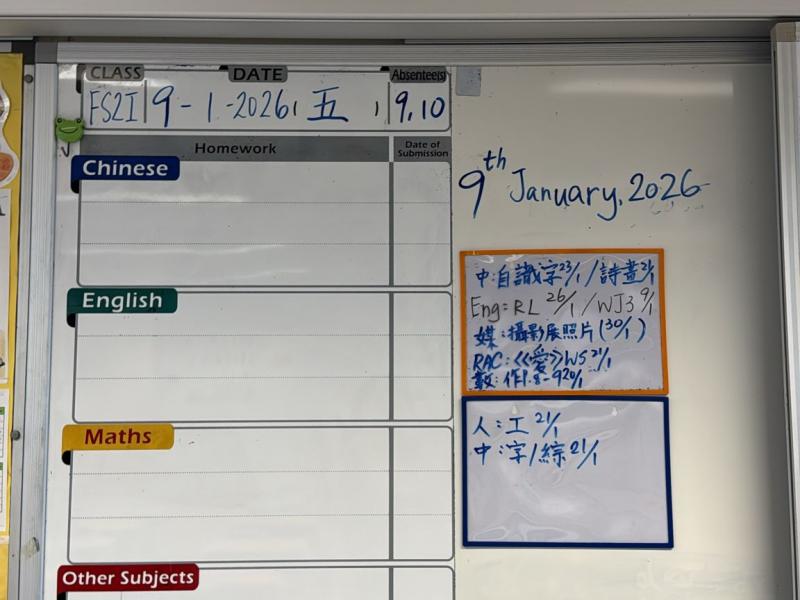 CLASS DATE Absentee(s)
FS2I 9-1-2026, 五 , 9,10
Homework Date of Submission
Chinese
English
Maths
Other Subjects
9th January, 2026
中:自識字23/1/詩畫21/1
Eng: RL 26/1 /WJ3 9/1
媒:攝影展照片(30/1)
RAC:《愛》WS 21/1
數:作1.8-9 20/1
人:工 21/1
中:字/綜 21/1